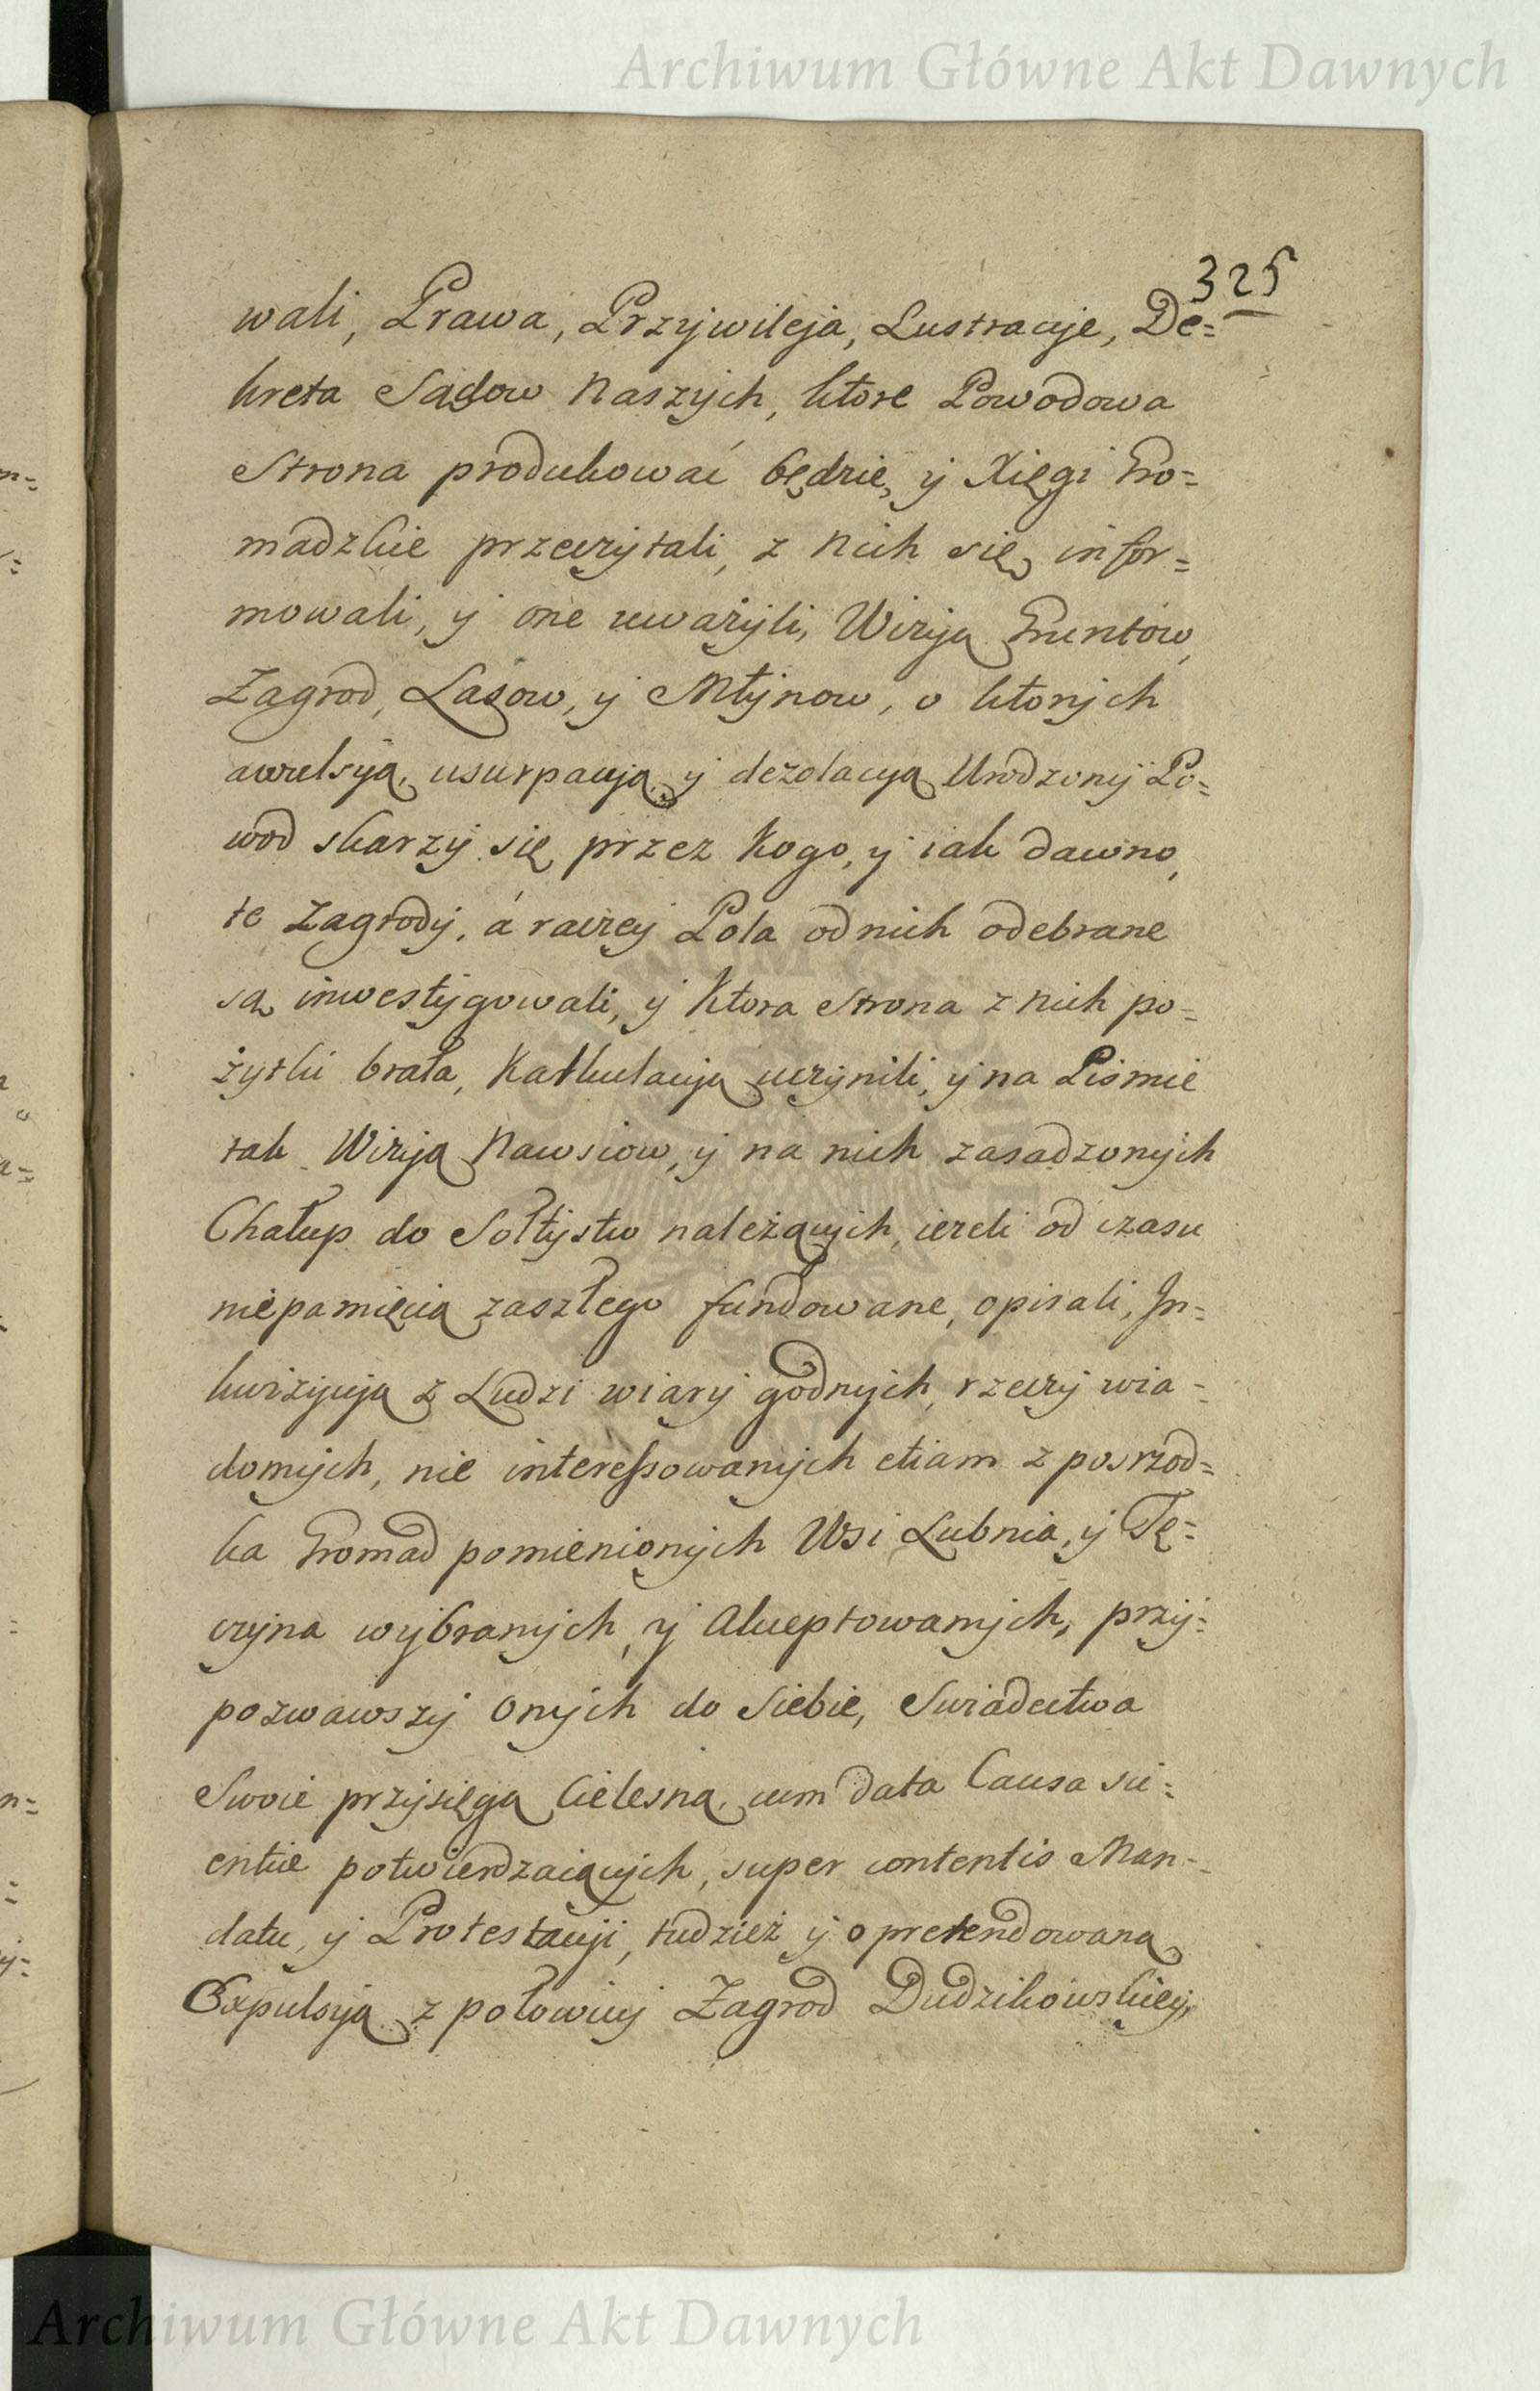 Archiwum Główne Akt Dawnych
325
wali, Prawa, Przywileja, Lustracye, De=
kreta Sądow Naszych, ktore Powodowa
Strona produkować będzie, y Xięgi Gro=
madzkie przeczytali, z nich się infor=
mowali, y one uważyli, Wizyą Gruntow,
Zagrod, Lasow, y Młynow, o ktorych
awulsyą, usurpacyą, y dezolacyą Urodzony Po=
wod skarzy się przez kogo, y iak dawno,
te Zagrody, á raczey Pola od nich odebrane
są, inwestygowali, y ktora Strona z nich po=
żytki brała, Kalkulacyą uczynili, y na Piśmie
tak Wizyą Nawsiow, y na nich zasadzonych
Chałup do Sołtystw należących, ieżeli od czasu
niepamięcią zaszłego fundowane, opisali, In=
kwizycyą z Ludzi wiary godnych, rzeczy wia=
domych, nie interessowanych etiam z posrzod=
ka Gromad pomienionych Wsi Lubnia, y Tę=
czyna wybranych, y Akceptowanych, przy=
pozwawszy onych do siebie, Swiadectwa
Swoie przysięgą Cielesną, cum data Causa sci=
entie potwierdzaiących, super contentis Man=
datu, y Protestacyi, tudzież y o pretendowaną
Expulsyą z połowicy Zagrod Dudzikowskiey,
Archiwum Główne Akt Dawnych